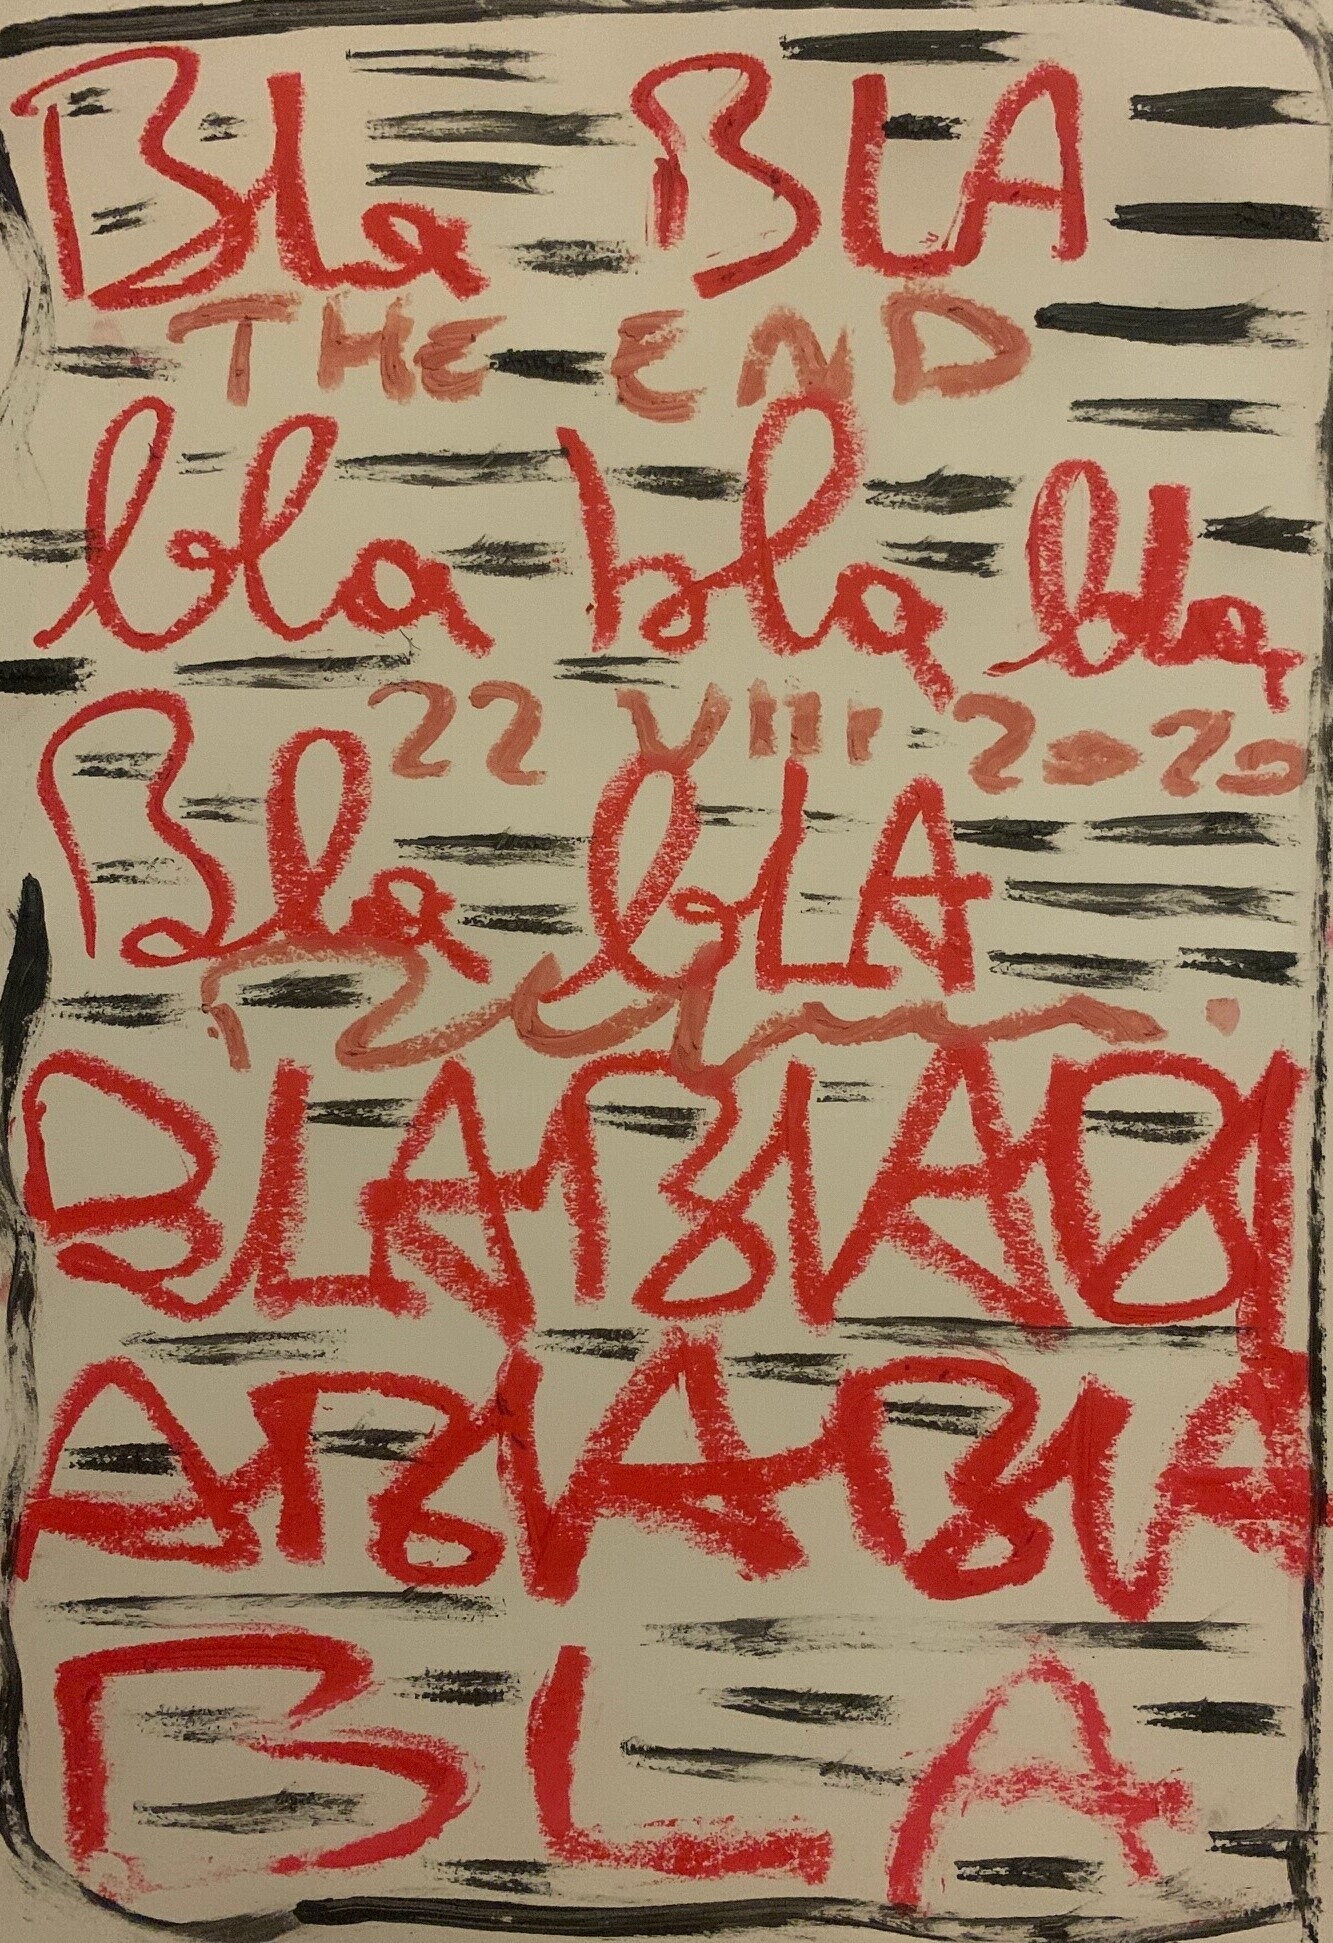 Bla BLA
THE END
bla bla bla
22 VIII 2020
Bla bLA
BLABLABL
ABLABLA
BLA